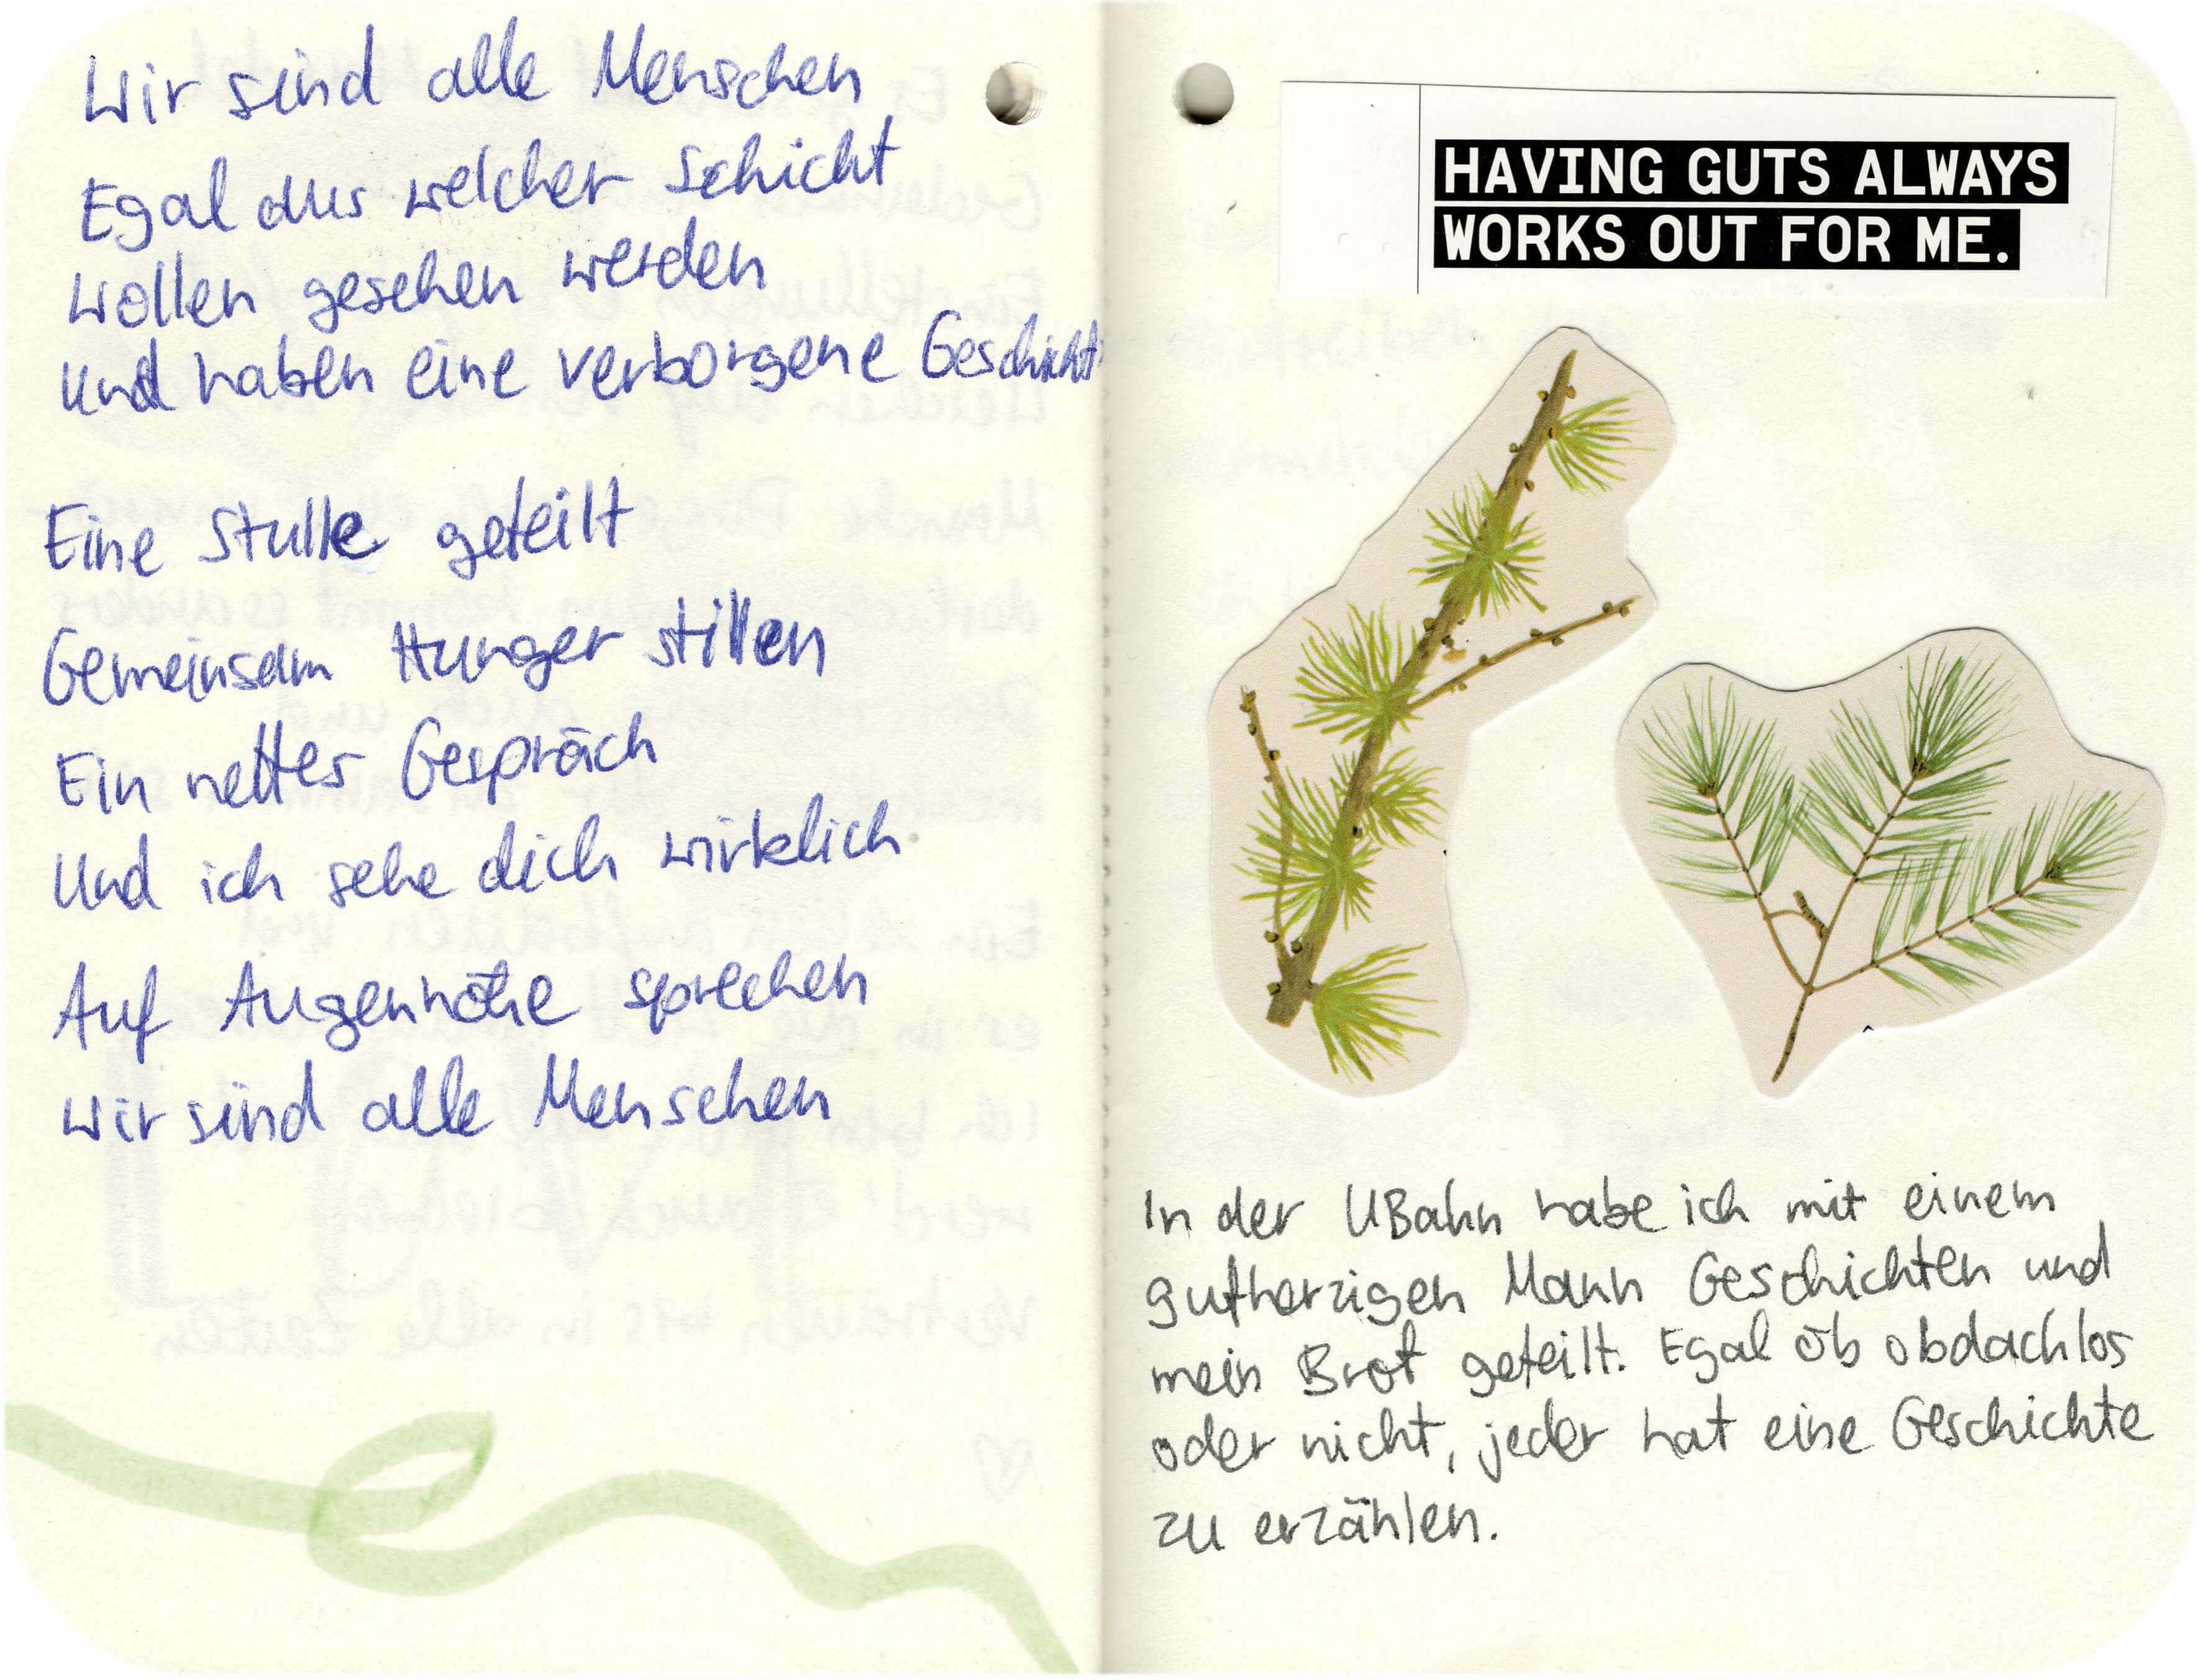 Wir sind alle Menschen
Egal aus welcher Schicht
Wollen gesehen werden
Und haben eine verborgene Geschicht
Eine Stulle geteilt
Gemeinsam Hunger stillen
Ein nettes Gespräch
Und ich sehe dich wirklich
Auf Augenhöhe sprechen
Wir sind alle Menschen
HAVING GUTS ALWAYS
WORKS OUT FOR ME.
In der UBahn habe ich mit einem
gutherzigen Mann Geschichten und
mein Brot geteilt. Egal ob obdachlos
oder nicht, jeder hat eine Geschichte
zu erzählen.